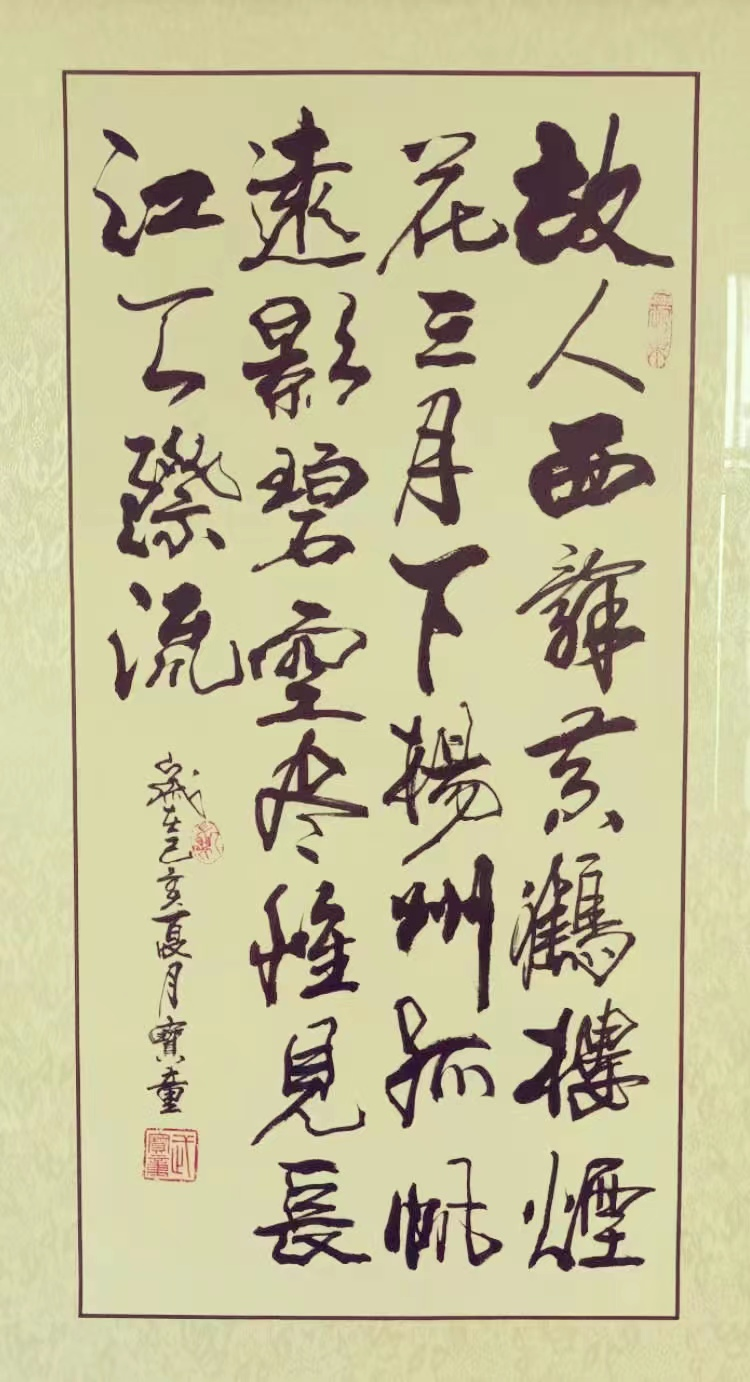 故人西辭黄鶴樓煙
花三月下揚州孤帆
遠影碧空尽惟見長
江天際流
歲在己亥夏月寶童
武寶童